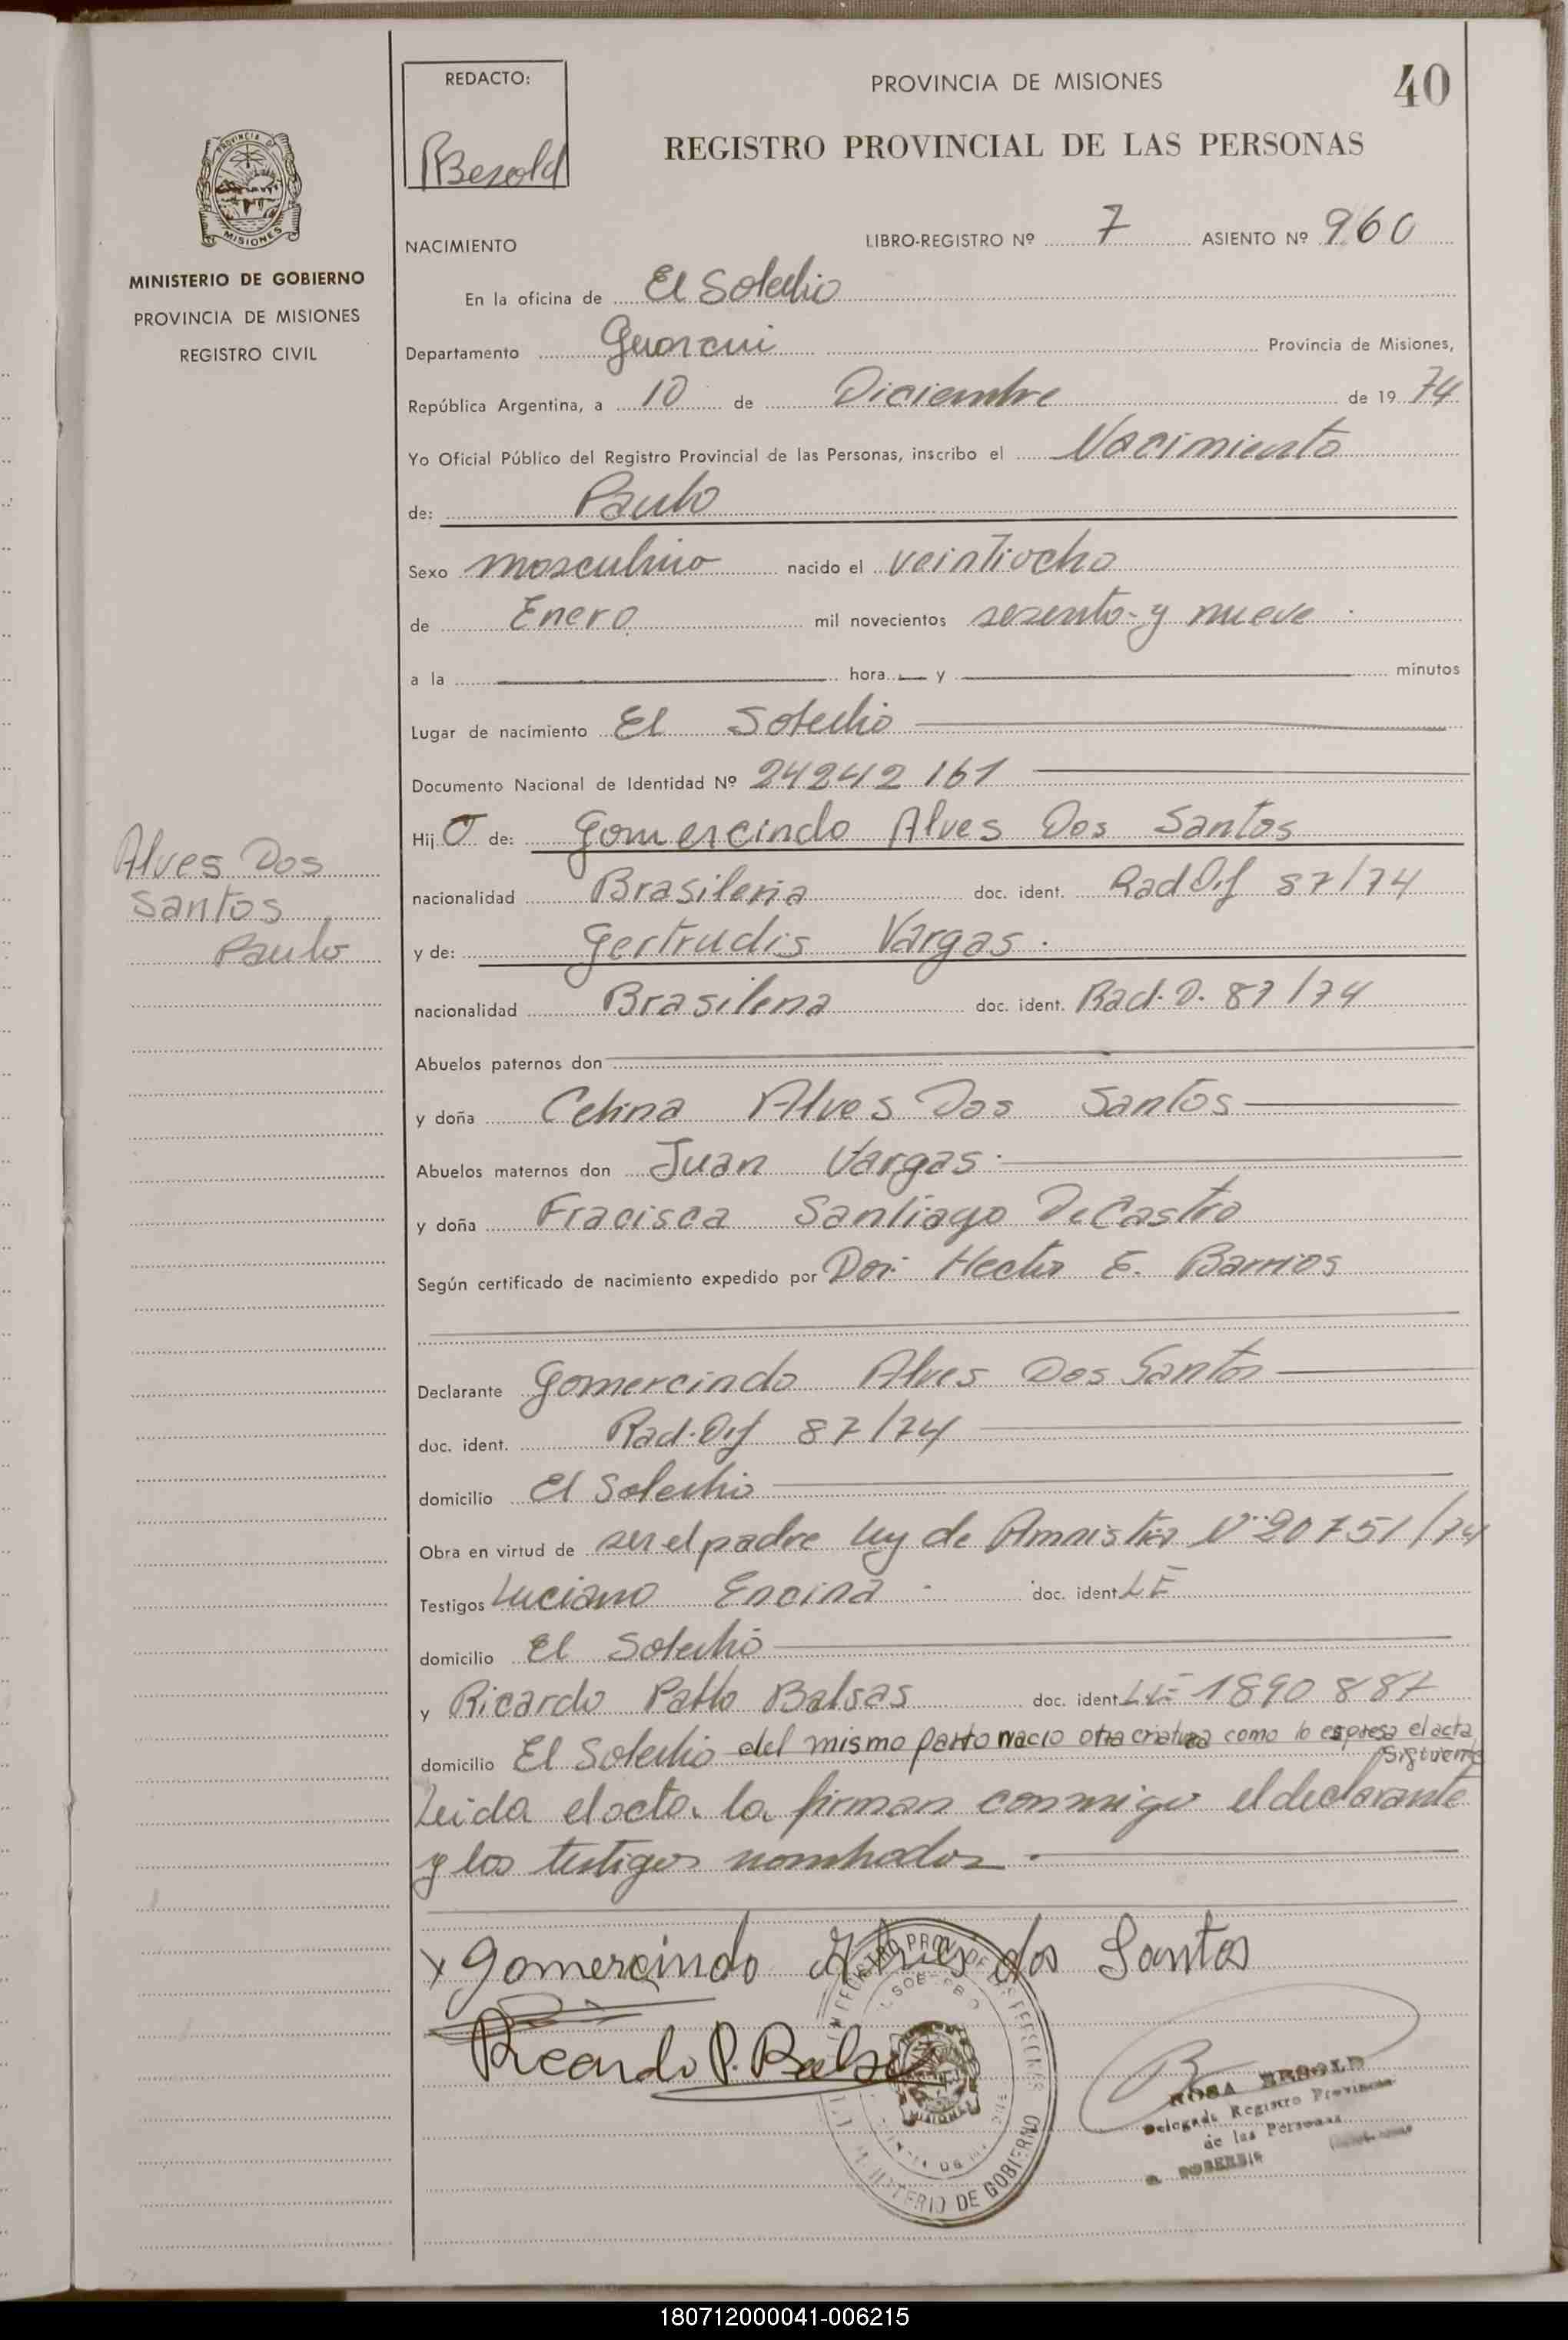 REDACTO:
RBesold
PROVINCIA DE MISIONES
40
REGISTRO PROVINCIAL DE LAS PERSONAS
PROVINCIA DE
MISIONES
MINISTERIO DE GOBIERNO
PROVINCIA DE MISIONES
REGISTRO CIVIL
NACIMIENTO
LIBRO-REGISTRO Nº 7 ASIENTO Nº 960
En la oficina de El Soberbio
Departamento Guarani Provincia de Misiones,
República Argentina, a 10 de Diciembre de 19 74
Yo Oficial Público del Registro Provincial de las Personas, inscribo el Nacimiento
de: Paulo
Sexo masculino nacido el veintiocho
de Enero mil novecientos sesenta y nueve
a la hora y minutos
Lugar de nacimiento El Soberbio
Documento Nacional de Identidad Nº 24242161
Hij O de: Gomercindo Alves Dos Santos
Alves Dos
Santos
Paulo
nacionalidad Brasileña doc. ident. Rad Dif 87/74
y de: Gertrudis Vargas.
nacionalidad Brasilena doc. ident. Rad. D. 87/74
Abuelos paternos don
y doña Celina Alves Dos Santos
Abuelos maternos don Juan Vargas.
y doña Fracisca Santiago De Castro
Según certificado de nacimiento expedido por Dor. Hector E. Barrios
Declarante Gomercindo Alves Dos Santos
doc. ident. Rad. Dif 87/74
domicilio El Soberbio
Obra en virtud de ser el padre Ley de Amnistia Nº 20751/74
Testigos Luciano Encina. doc. ident. L E
domicilio El Soberbio
y Ricardo Pablo Balsas doc. ident. L E 1890887
domicilio El Soberbio del mismo parto nacio otra criatura como lo espresa el acta
siguiente
Leida el acta la firman conmigo el declarante
y los testigos nombrados.
x Gomercindo Alves dos Santos
Ricardo P. Balsa
REGISTRO PROV. DE LAS PERSONAS
MISIONES
MINISTERIO DE GOBIERNO
ROSA BESOLD
Delegada Registro Provincial
de las Personas
SOBERBIO
180712000041-006215